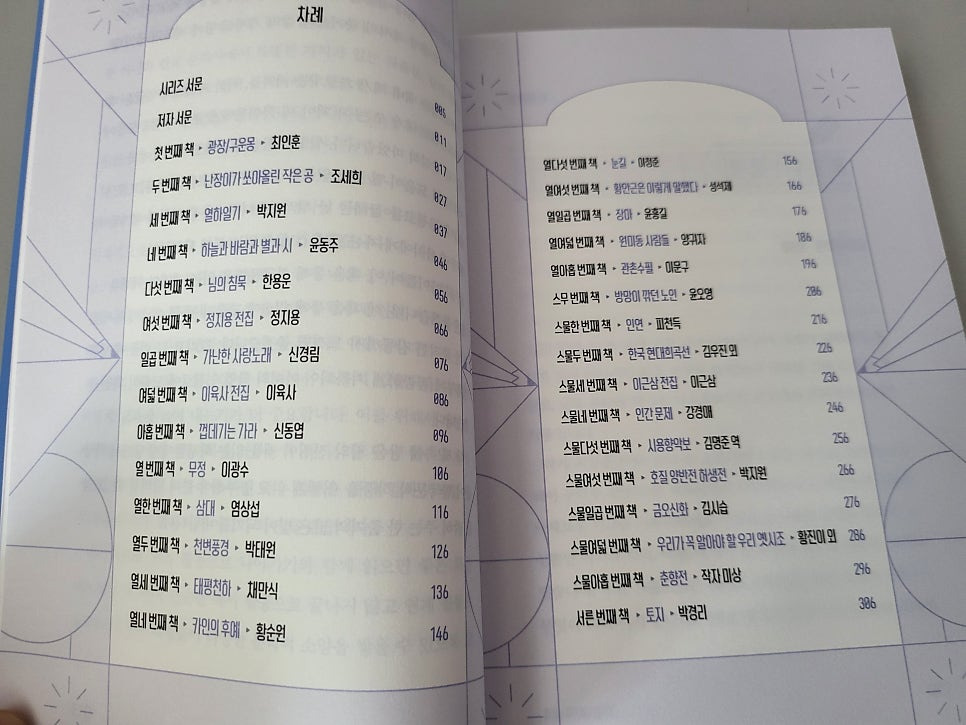 차례
시리즈 서문 006
저자 서문 011
첫 번째 책 ▸ 광장/구운몽 ▸ 최인훈 017
두 번째 책 ▸ 난장이가 쏘아올린 작은 공 ▸ 조세희 027
세 번째 책 ▸ 열하일기 ▸ 박지원 037
네 번째 책 ▸ 하늘과 바람과 별과 시 ▸ 윤동주 046
다섯 번째 책 ▸ 님의 침묵 ▸ 한용운 056
여섯 번째 책 ▸ 정지용 전집 ▸ 정지용 066
일곱 번째 책 ▸ 가난한 사랑노래 ▸ 신경림 076
여덟 번째 책 ▸ 이육사 전집 ▸ 이육사 086
아홉 번째 책 ▸ 껍데기는 가라 ▸ 신동엽 096
열 번째 책 ▸ 무정 ▸ 이광수 106
열한 번째 책 ▸ 삼대 ▸ 염상섭 116
열두 번째 책 ▸ 천변풍경 ▸ 박태원 126
열세 번째 책 ▸ 태평천하 ▸ 채만식 136
열네 번째 책 ▸ 카인의 후예 ▸ 황순원 146
열다섯 번째 책 ▸ 눈길 ▸ 이청준 156
열여섯 번째 책 ▸ 황만근은 이렇게 말했다 ▸ 성석제 166
열일곱 번째 책 ▸ 장마 ▸ 윤흥길 176
열여덟 번째 책 ▸ 원미동 사람들 ▸ 양귀자 186
열아홉 번째 책 ▸ 관촌수필 ▸ 이문구 196
스무 번째 책 ▸ 방망이 깎던 노인 ▸ 윤오영 206
스물한 번째 책 ▸ 인연 ▸ 피천득 216
스물두 번째 책 ▸ 한국 현대희곡선 ▸ 김우진 외 226
스물세 번째 책 ▸ 이근삼 전집 ▸ 이근삼 236
스물네 번째 책 ▸ 인간 문제 ▸ 강경애 246
스물다섯 번째 책 ▸ 시용향악보 ▸ 김명준 역 256
스물여섯 번째 책 ▸ 호질 양반전 허생전 ▸ 박지원 266
스물일곱 번째 책 ▸ 금오신화 ▸ 김시습 276
스물여덟 번째 책 ▸ 우리가 꼭 알아야 할 우리 옛시조 ▸ 황진이 외 286
스물아홉 번째 책 ▸ 춘향전 ▸ 작자 미상 296
서른 번째 책 ▸ 토지 ▸ 박경리 306